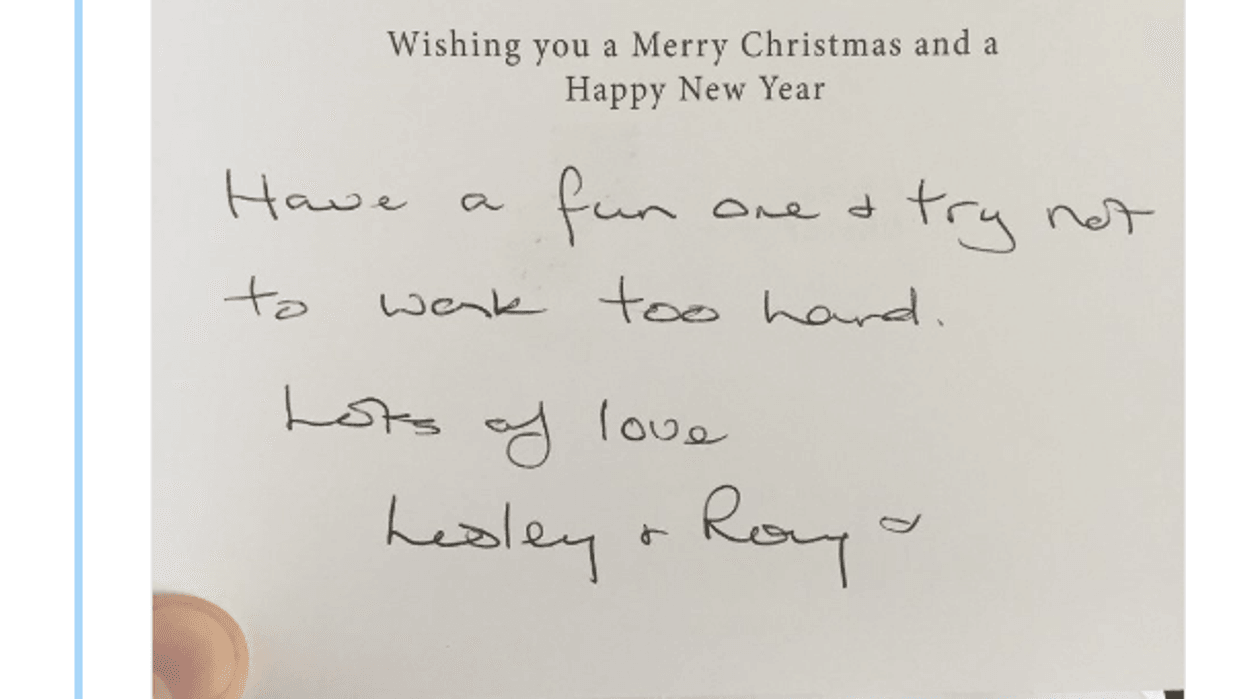 Wishing you a Merry Christmas and a
Happy New Year
Have a fun one & try not
to work too hard.
Lots of love
Lesley & Roy